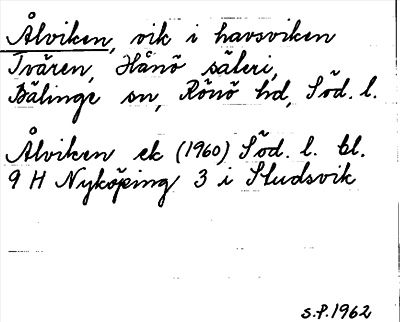 Ålviken, vik i havsviken
Tvären, Hånö säteri,
Bälinge sn, Rönö hd, Söd. l.
Ålviken ek (1960) Söd. l. bl.
9 H Nyköping 3 i Studsvik
S.P. 1962